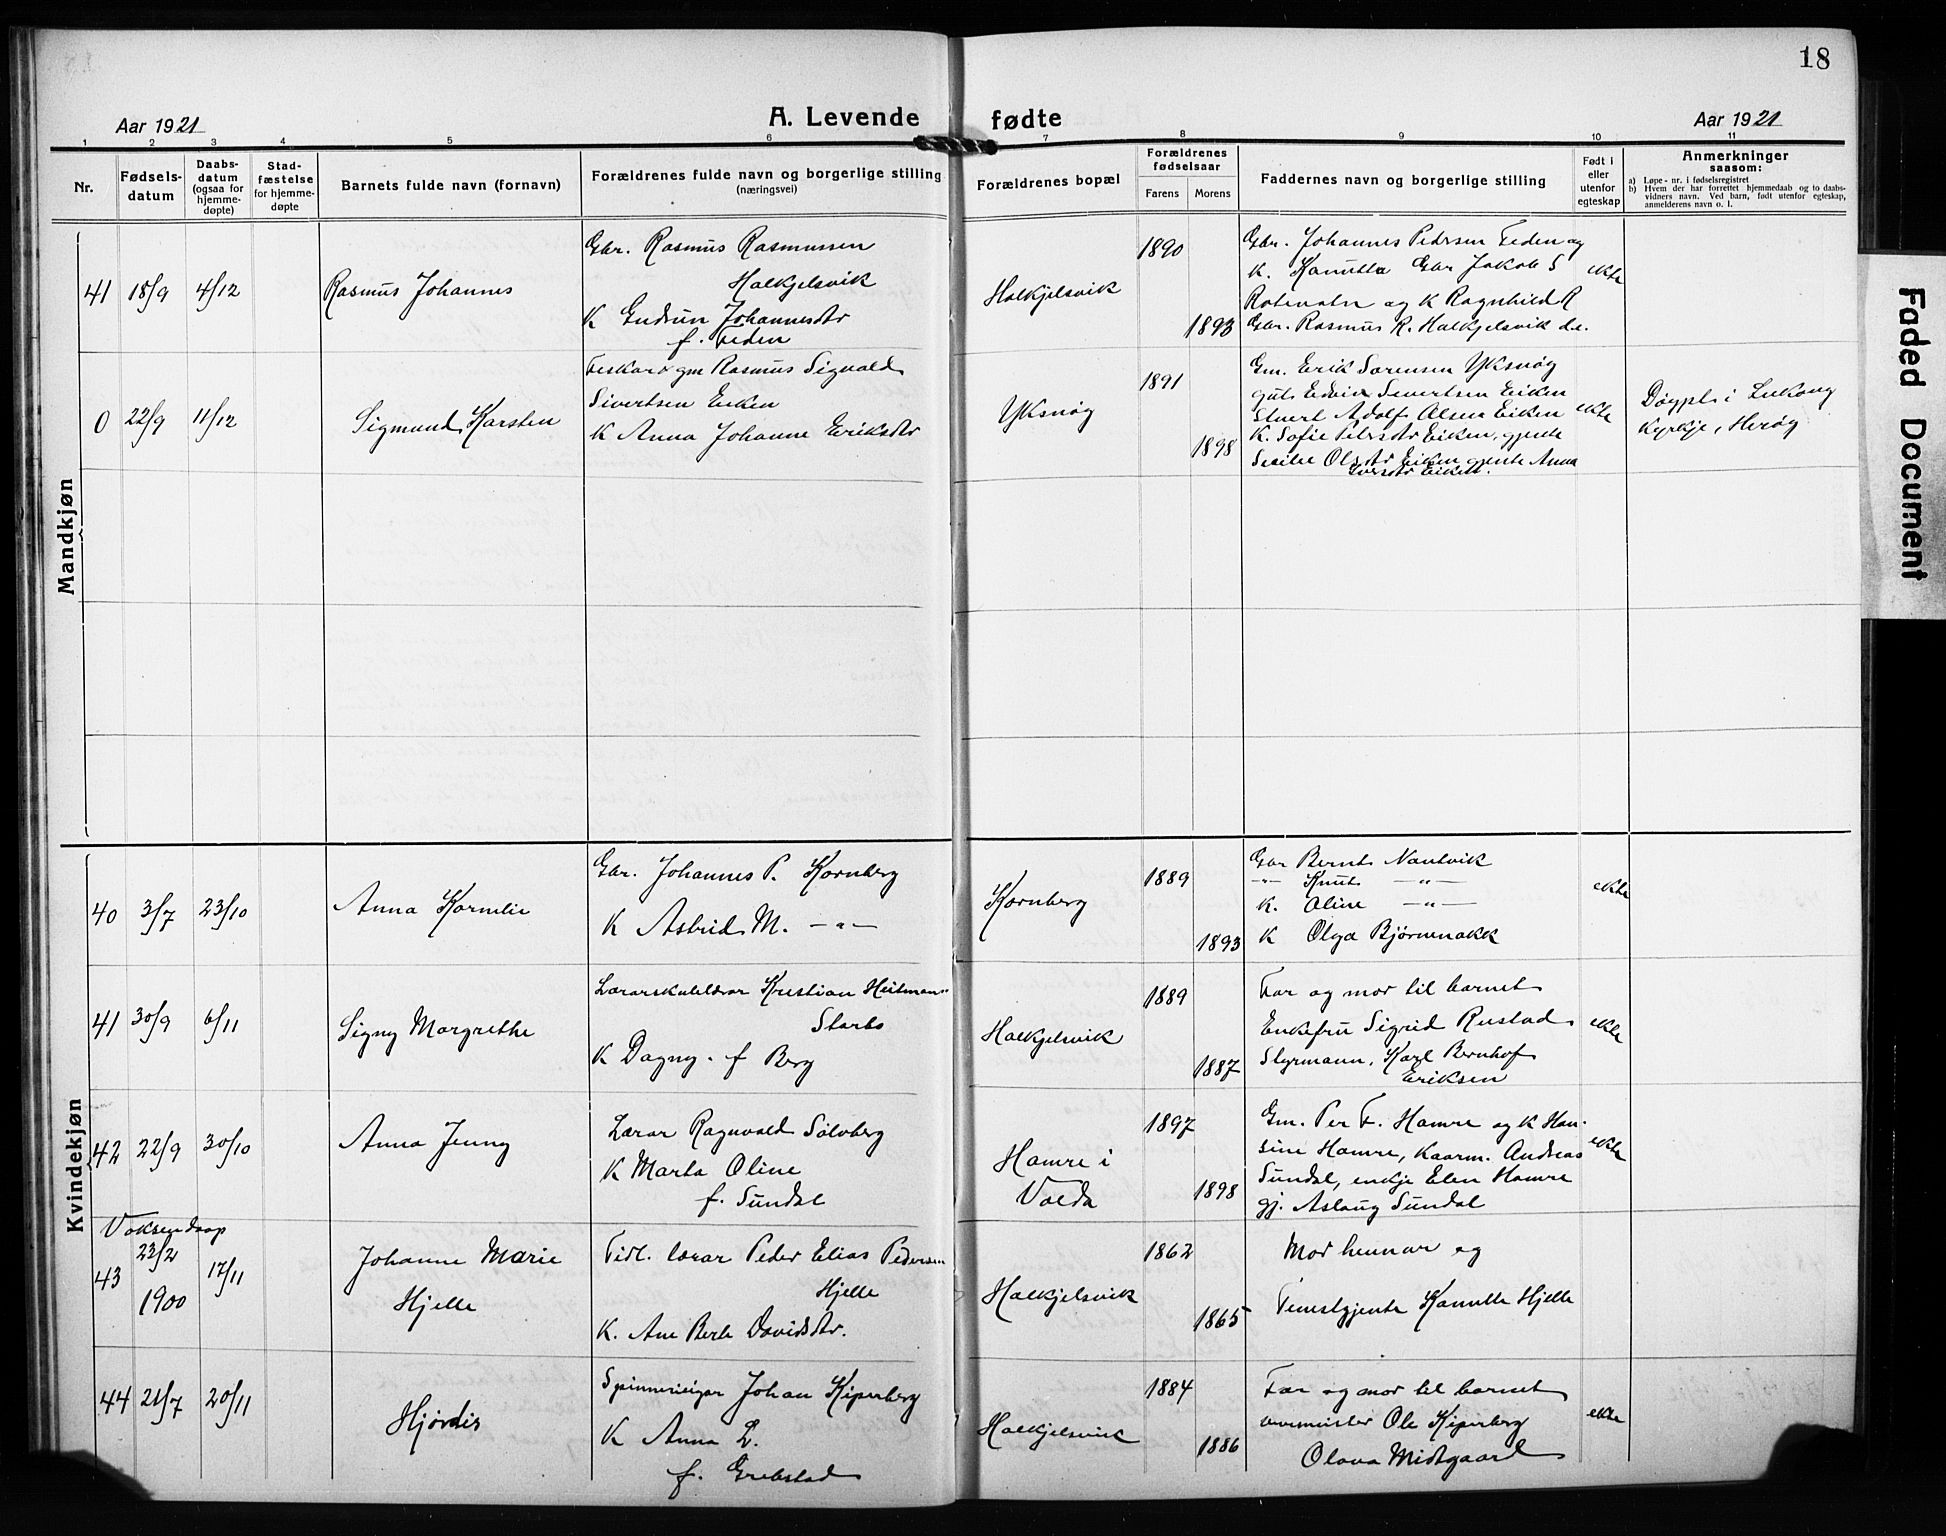 18
Aar 1921
A. Levende fødte
Aar 1921
1 2 3 4 5 6 7 8 9 10 11
Nr.
Fødsels-
datum
Daabs-
datum
(ogsaa for
hjemme-
døpte)
Stad-
fæstelse
for hjemme-
døpte
Barnets fulde navn (fornavn)
Forældrenes fulde navn og borgerlige stilling
(næringsvei)
Forældrenes bopæl
Forældrenes
fødselsaar
Farens
Morens
Faddernes navn og borgerlige stilling
Født i
eller
utenfor
egteskap
Anmerkninger
saasom:
a) Løpe-nr. i fødselsregistret
b) Hvem der har forrettet hjemmedaab og to daabs-
vidners navn. Ved barn, født utenfor egteskap,
anmelderens navn o. l.
Mandkjøn
41 18/9 4/12
Rasmus Johannes
Gbr. Rasmus Rasmussen
Halkjelsvik
K Gudrun Johannesdtr
f. Feden
Halkjelsvik
1890
1893
Gbr. Johannes Pedersen Feden og
K. Kanutta Gbr Jakob S
Rotevatn og K Ragnhild R
Gbr. Rasmus R. Halkjelsvik d.e.
ekte
0 22/9 11/12
Sigmund Karsten
Feskar o gm Rasmus Sigvald
Sivertsen Eiken
K Anna Johanne Eriksdtr
Yksnøy
1891
1898
Gm. Erik Sørensen Yksnøy
gut Edvin Sivertsen Eiken
Adolf Olsen Eiken
K. Sofie Petersdtr Eiken, gjente
Olsdtr Eiken gjente Anna
Eiken.
ekte
Døypt i Leikong
kyrkje, Herøy
Kvindekjøn
40 3/7 23/10
Anna Kornelie
Gbr. Johannes P. Kornberg
K Astrid M. —"—
Kornberg
1889
1893
Gbr Bernt Nautvik
-"- Knut —"—
K. Oline —"—
K Olga Bjørnenakk
ekte
41 30/9 6/11
Signy Margrethe
Lærarskulelærar Kristian Heitman
Starb
K Dagny. f Berg
Halkjelsvik
1889
1887
Far og mor til barnet
Enkefru Sigrid Rustad
Styrmann, Karl Bernhof
Eriksen
ekte
42 22/9 30/10
Anna Jenny
Lærar Ragnvald Sølvberg
K Marta Oline
f. Sundal
Hamre i
Volda
1897
1898
Gm. Per F. Hamre og K Han-
sine Hamre, Kaarm. Andreas
Sundal, enkje Elen Hamre
gj. Aslaug Sundal
ekte
Voksendaap
43 23/2
1900
17/11
Johanne Marie
Hjelle
Fidl. lærar Peder Elias Pedersen
Hjelle
K. Ane Berte Davidsdtr.
Halkjelsvik
1862
1865
Mor hennar og
Tenestgjente Kanutte Hjelle
44 21/7 20/11
Hjørdis
Spinnerieigar Johan Kiperberg
K Anna L.
f. Grebstad
Halkjelsvik
1884
1886
Far og mor til barnet
Ole Kiperberg
Olava Midtgaard
ekte
Faded Document